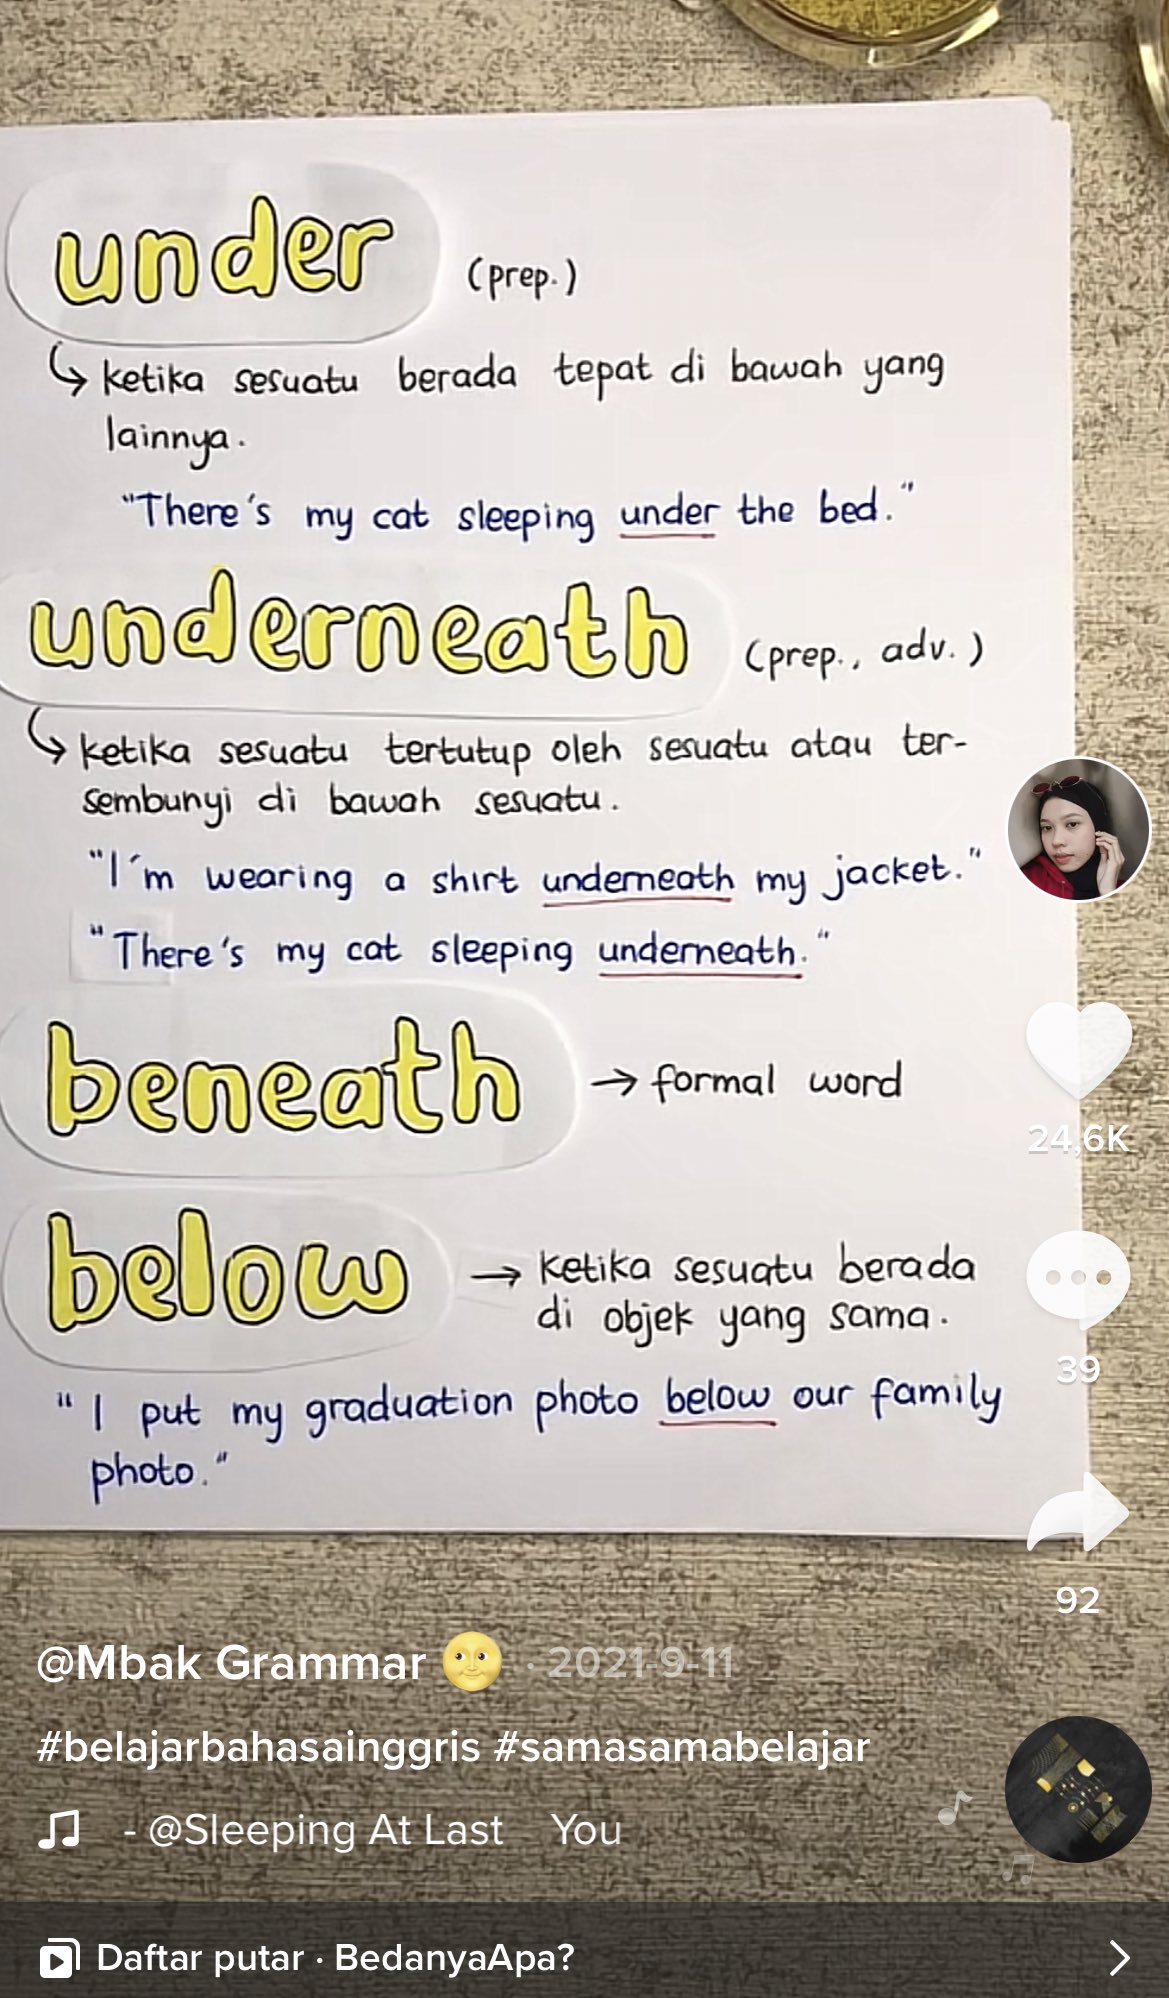 under (prep.)
↳ ketika sesuatu berada tepat di bawah yang
lainnya.
"There's my cat sleeping under the bed."
underneath (prep., adv.)
↳ ketika sesuatu tertutup oleh sesuatu atau ter-
sembunyi di bawah sesuatu.
"I'm wearing a shirt underneath my jacket."
"There's my cat sleeping underneath."
beneath → formal word
below → ketika sesuatu berada
di objek yang sama.
"I put my graduation photo below our family
photo."
24,6K
39
92
@Mbak Grammar 🌝 · 2021-9-11
#belajarbahasainggris #samasamabelajar
- @Sleeping At Last You
Daftar putar · BedanyaApa?